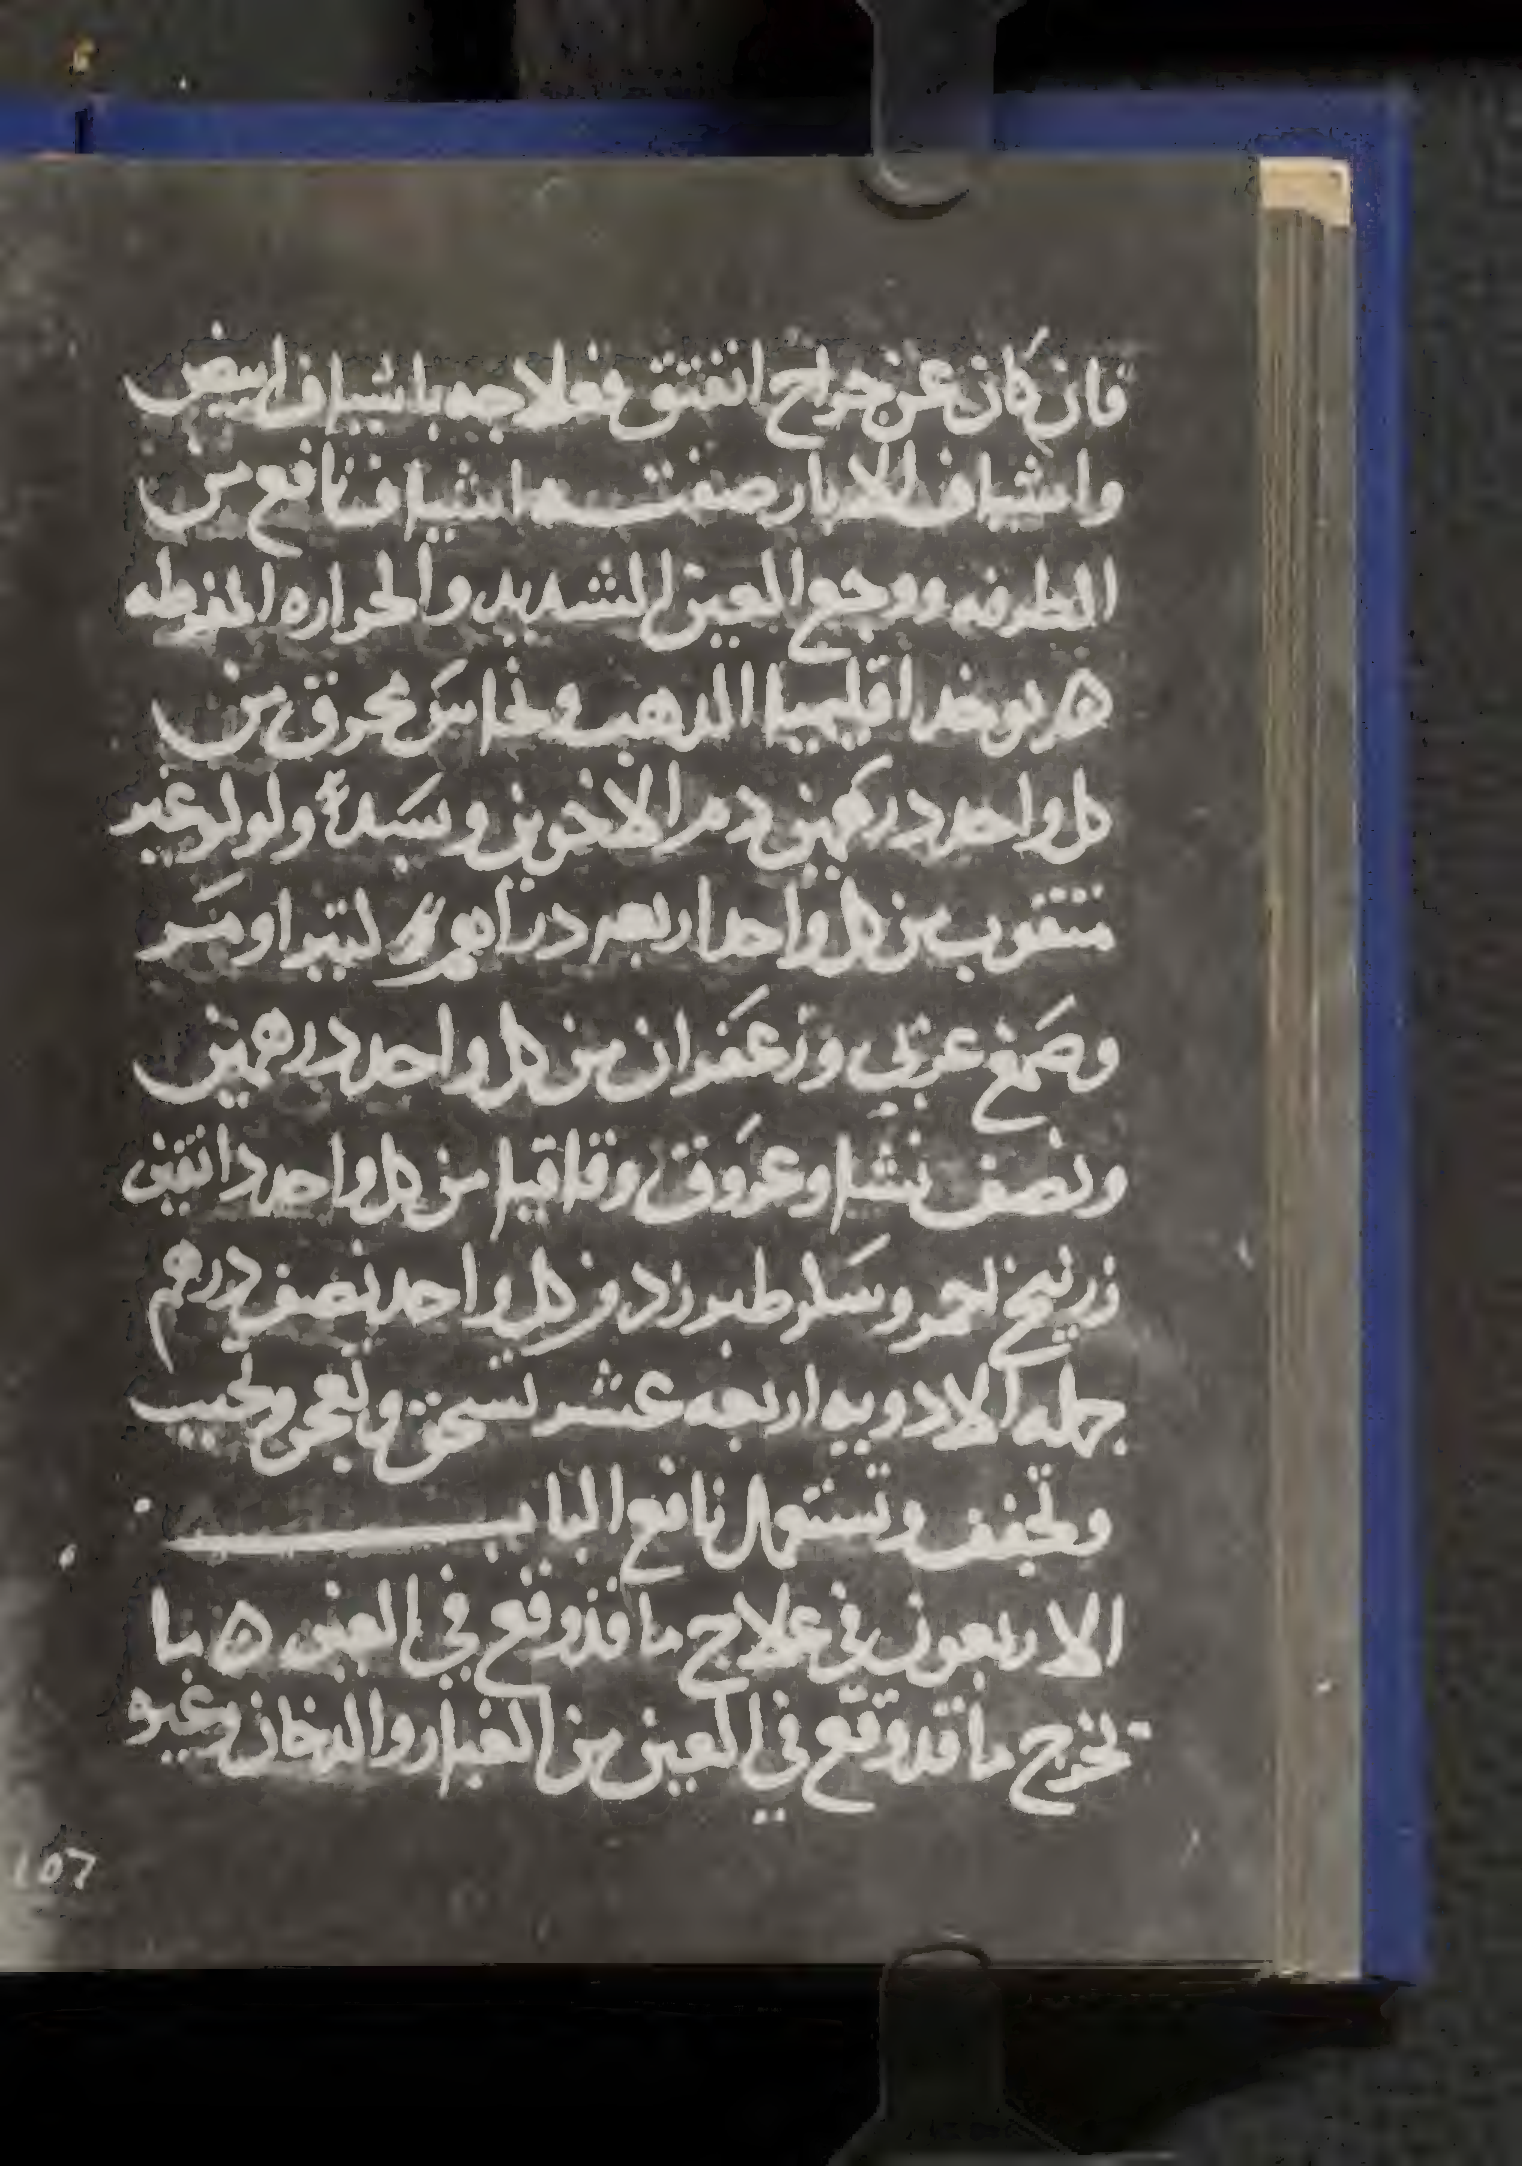 فان كان عن جراح انفتق فعلاجه باشياف ابيض
واشياف الابار صفته اشياف نافع من
الطرفه ووجع العين الشديد والحراره المفرطه
ه يوخد اقليميا الدهب ونحاس محرق من
كل واحد درهمين دم الاخوين وبسد ولولو غير
مثقوب من كل واحد اربعه دراهم او مر
وصمغ عربي وزعفران من كل واحد درهمين
ونصف نشا وعروق وقاقيا من كل واحد دانقين
زرنيخ احمر وسكر طبرزد من كل واحد نصف درهم
جمله الادويه اربعه عشر تسحق وتعجن وتحبب
وتجفف وتستعمل نافع الباب
الاربعون في علاج ما قد وقع في العين ه ما
تخرج ما قد وقع في العين من الغبار والدخان وغيره
١٥٦